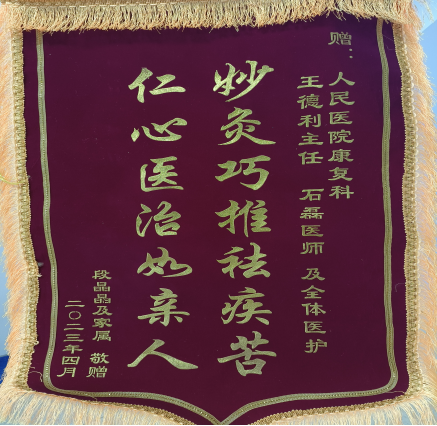 赠：人民医院康复科
王德利主任 石磊医师 及全体医护
妙灸巧推祛疾苦
仁心医治如亲人
段晶晶及家属 敬赠
二〇二三年四月